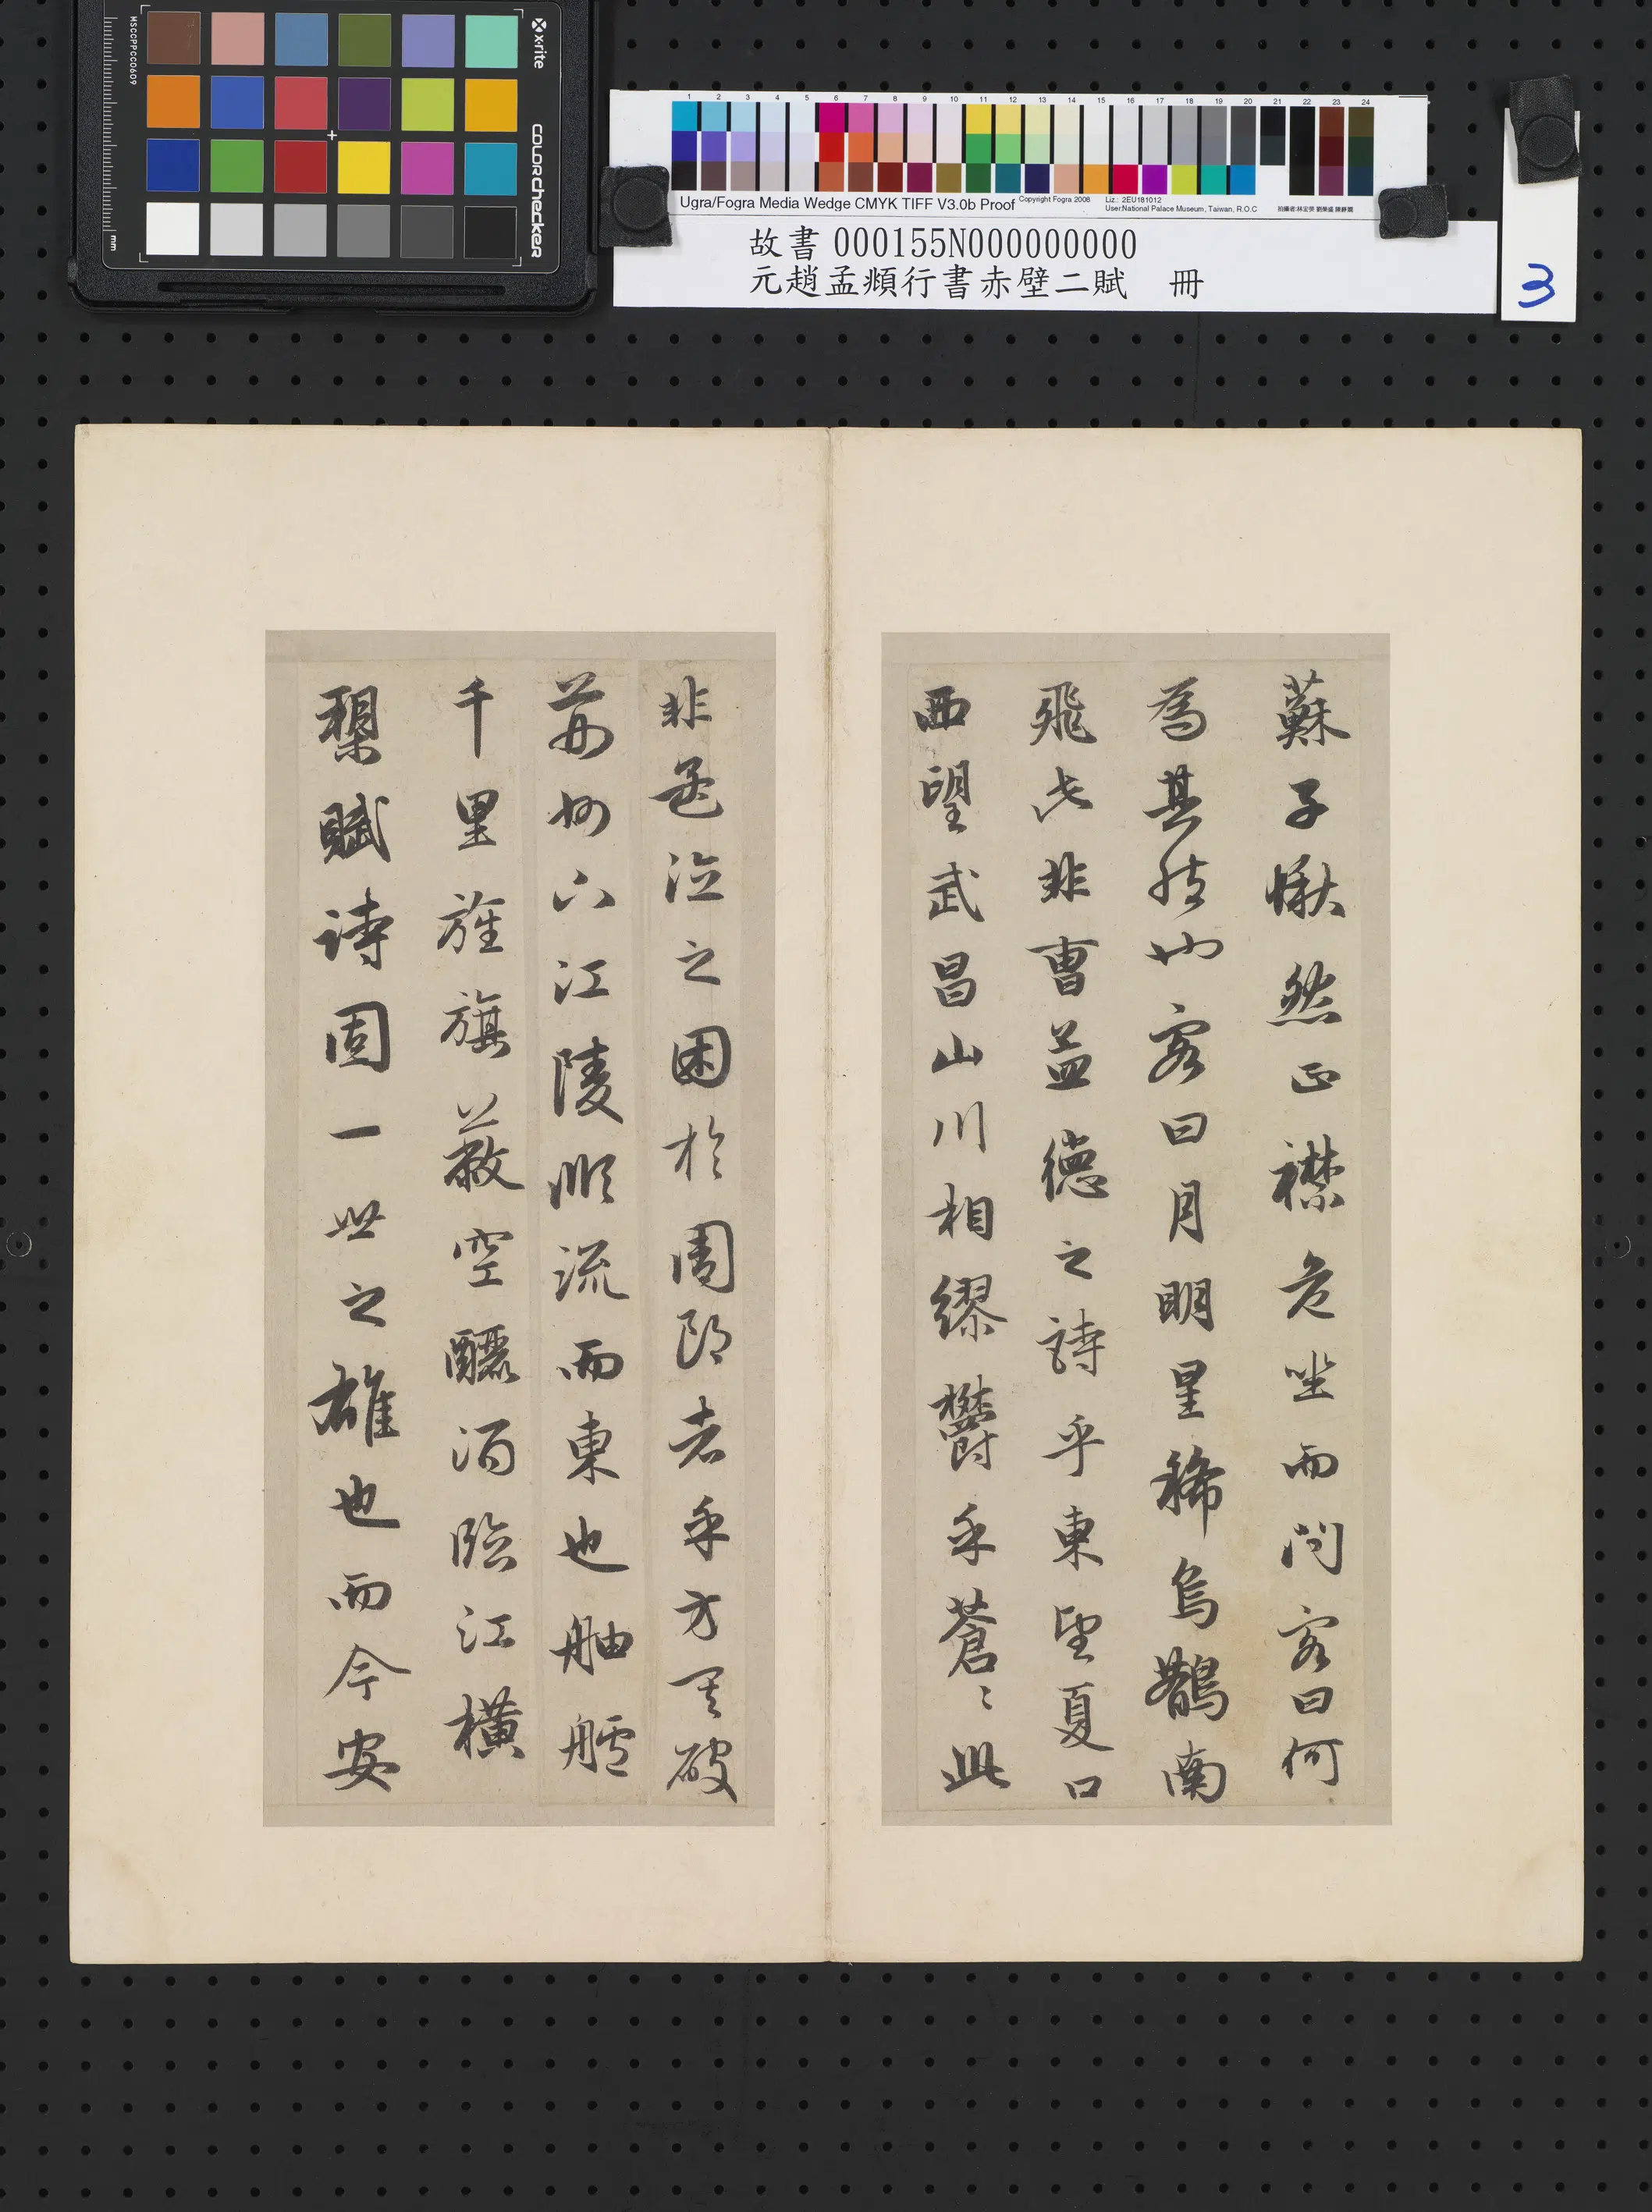 MSCCPPCC0609
x-rite
colorchecker
mm
1 2 3 4 5 6 7 8 9 10 11 12 13 14 15 16 17 18 19 20 21 22 23 24
Ugra/Fogra Media Wedge CMYK TIFF V3.0b Proof
Copyright Fogra 2008
Liz.: 2EU181012
User:National Palace Museum, Taiwan, R.O.C
故書 000155N000000000
元趙孟頫行書赤壁二賦 冊
3
蘇子愀然正襟危坐而問客曰何
為其然也客曰月明星稀烏鵲南
飛此非曹孟德之詩乎東望夏口
西望武昌山川相繆鬱乎蒼〻此
非孟德之困於周郎者乎方其破
荊州下江陵順流而東也舳艫
千里旌旗蔽空釃酒臨江橫
槊賦詩固一世之雄也而今安